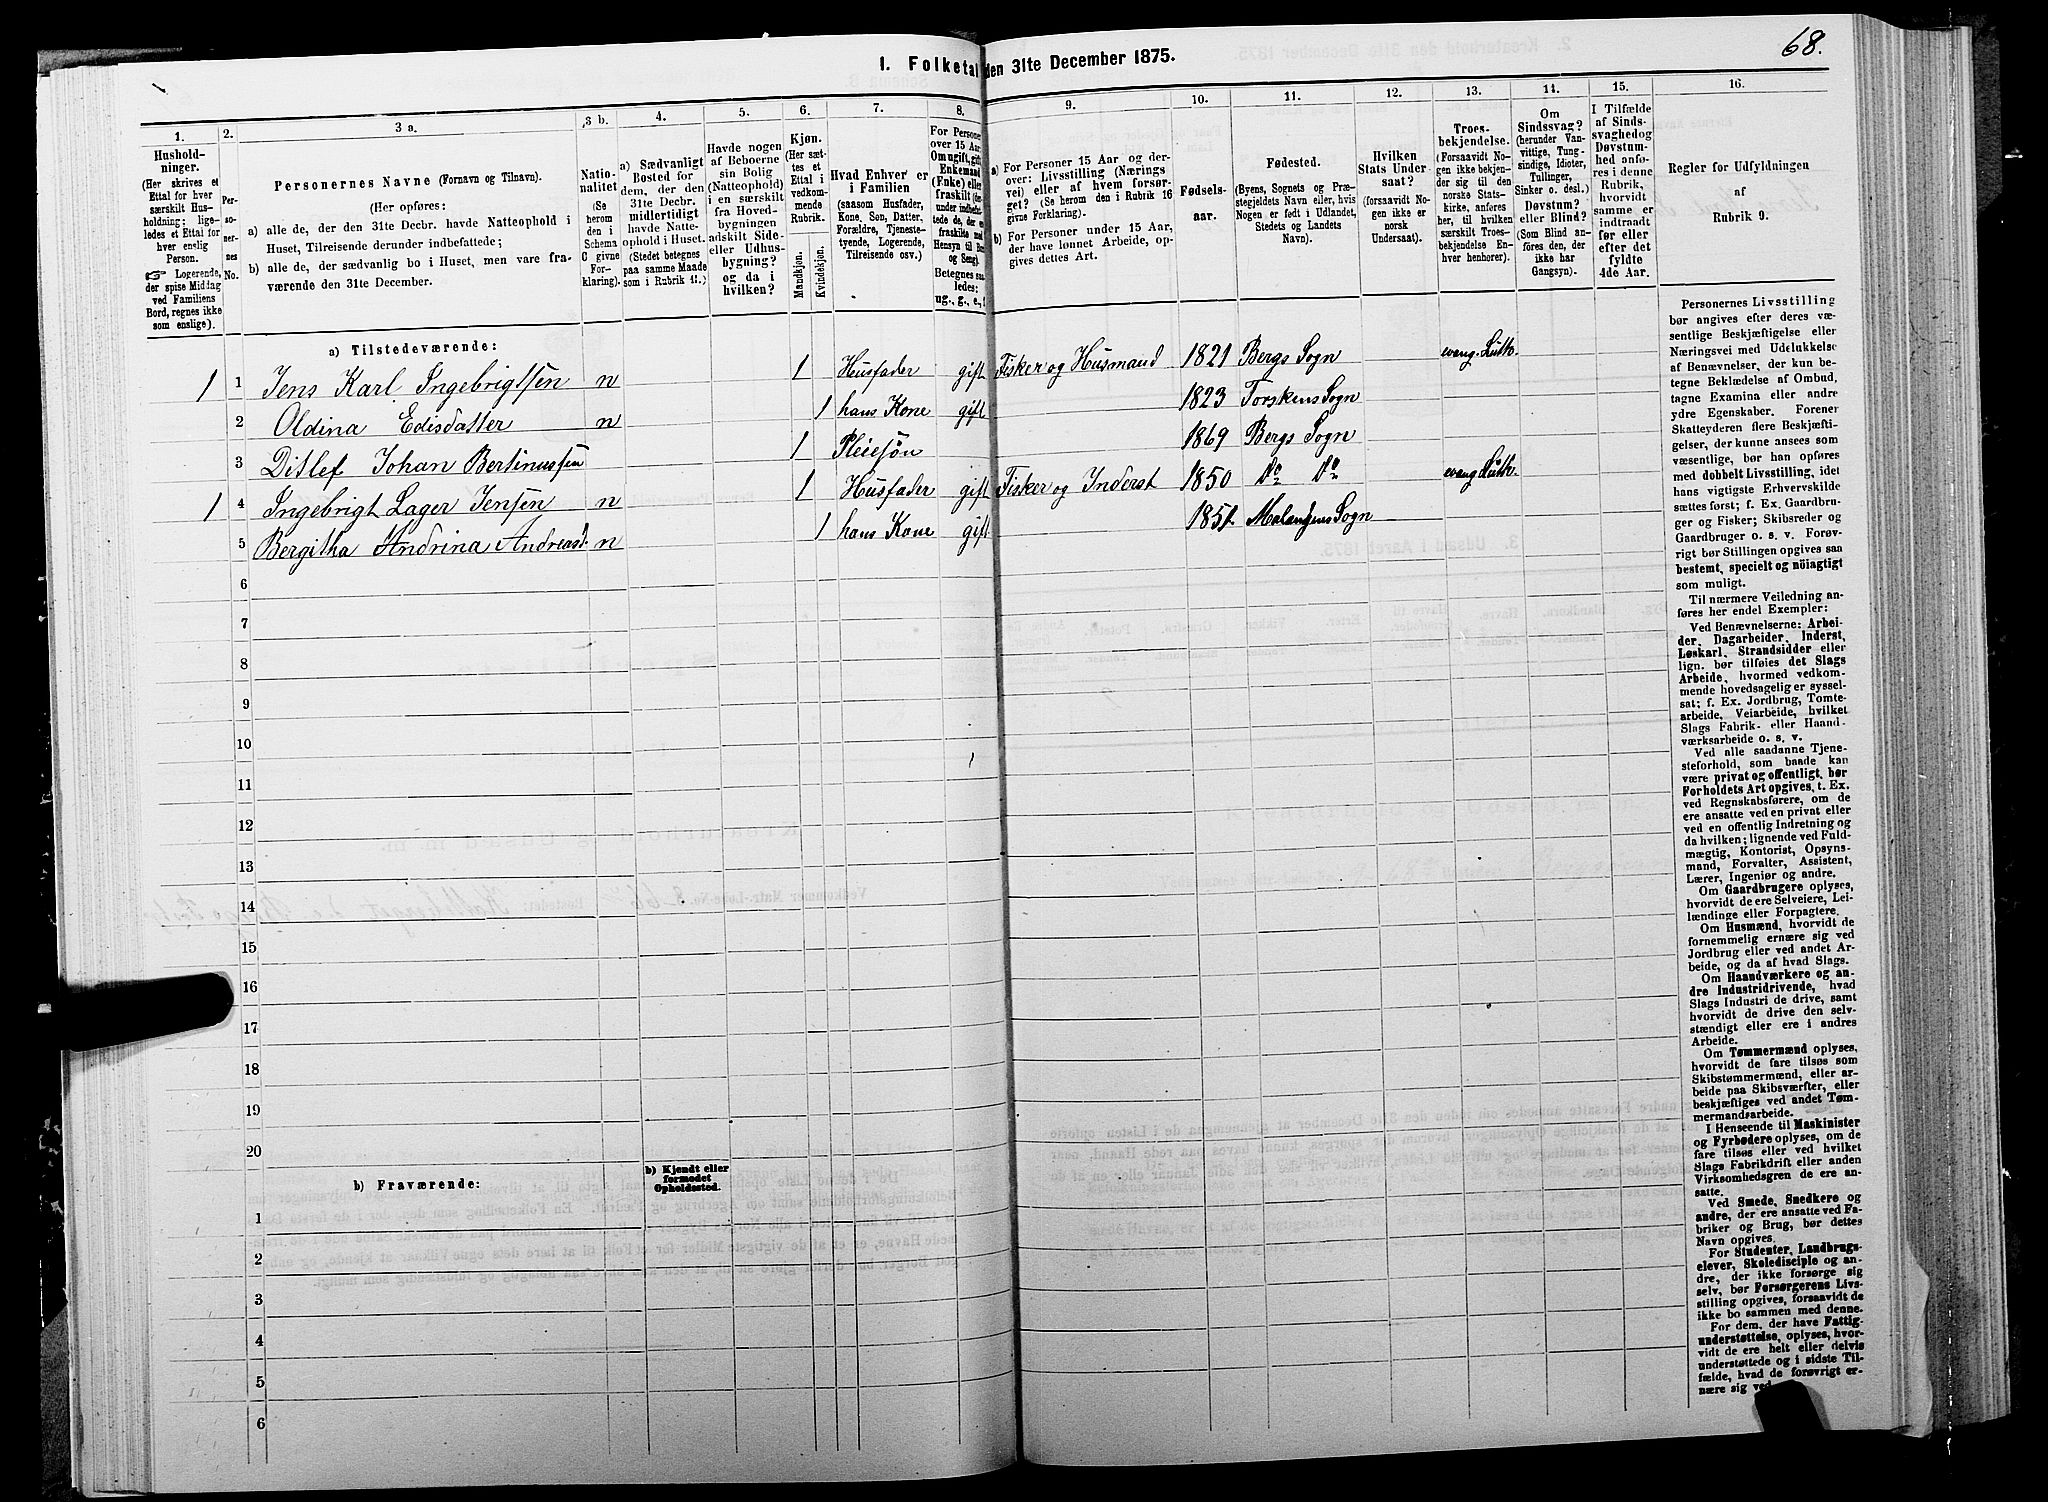 68.
I. Folketal den 31te December 1875.
1.
2.
3 a.
3 b.
4.
5.
6.
7.
8.
9.
10.
11.
12.
13.
14.
15.
16.
Hushold-
ninger.
(Her skrives et
Ettal for hver
særskilt Hus-
holdning; lige-
ledes et Ettal for
hver enslig
Person.
☞ Logerende,
der spise Middag
ved Familiens
Bord, regnes ikke
som enslige).
Per-
so-
ner-
nes
No.
Personernes Navne (Fornavn og Tilnavn).
(Her opføres:
a) alle de, der den 31te Decbr. havde Natteophold i
Huset, Tilreisende derunder indbefattede;
b) alle de, der sædvanlig bo i Huset, men vare fra-
værende den 31te December.
Natio-
nalitet
(Se
herom
den i
Schema
C givne
For-
klaring).
a) Sædvanligt
Bosted for
dem, der den
31te Decbr.
midlertidigt
havde Natte-
ophold i Huset.
(Stedet betegnes
paa samme Maade
som i Rubrik 11.)
Havde nogen
af Beboerne
sin Bolig
(Natteophold)
i en særskilt
fra Hoved-
bygningen
adskilt Side-
eller Udhus-
bygning?
og da i
hvilken?
Kjøn.
(Her sæt-
tes et
Ettal i
vedkom-
mende
Rubrik.
Mandkjøn.
Kvindekjøn.
Hvad Enhver er
i Familien
(saasom Husfader,
Kone, Søn, Datter,
Forældre, Tjeneste-
tyende, Logerende,
Tilreisende osv.)
For Personer
over 15 Aar:
Om ugift, gift,
Enkemand
(Enke) eller
fraskilt
Betegnes saa-
ledes:
ug., g., e., f.
a) For Personer 15 Aar og der-
over: Livsstilling (Nærings
vei) eller af hvem forsør-
get? (Se herom den i Rubrik 16
givne Forklaring).
b) For Personer under 15 Aar,
der have lønnet Arbeide, op-
gives dettes Art.
Fødsels-
aar.
Fødested.
(Byens, Sognets og Præ-
stegjeldets Navn eller, hvis
Nogen er født i Udlandet,
Stedets og Landets
Navn).
Hvilken
Stats Under-
saat?
(forsaavidt No-
gen ikke er
norsk
Undersaat).
Troes-
bekjendelse.
(Forsaavidt No-
gen ikke bekjen-
der sig til den
norske Stats-
kirke, anføres
her, til hvilken
særskilt Troes-
bekjendelse En-
hver henhører).
Om
Sindssvag?
(herunder Van-
vittige, Tung-
sindige, Idioter,
Tullinger,
Sinker o. desl.)
Døvstum?
eller Blind?
(Som Blind an-
føres den, der
ikke har
Gangsyn).
I Tilfælde
af Sinds-
svaghed og
Døvstum-
hed anfø-
res i denne
Rubrik,
hvorvidt
samme er
indtraadt
før eller
efter det
fyldte
4de Aar.
Regler for Udfyldningen
af
Rubrik 9.
a) Tilstedeværende:
1 1 Jens Karl Ingebrigtsen n 1 Husfader gift Fisker og Husmand 1821 Bergs Sogn evang. Luth.
2 Oldina Edisdatter n 1 hans Kone gift 1823 Torskens Sogn
3 Ditlef Johan Bertinussen 1 Pleiesøn 1869 Bergs Sogn
1 4 Ingebrigt Lager Jensen n 1 Husfader gift Fisker og Inderst 1850 Do Do evang Luth.
5 Bergitha Andrina Andreasd. n 1 hans Kone gift 1851 Malangens Sogn
6
7
8
9
10
11
12
13
14
15
16
17
18
19
20
b) Fraværende:
b) Kjendt eller
formodet
Opholdssted.
1
2
3
4
5
6
Personernes Livsstilling
bør angives efter deres væ-
sentlige Beskjæftigelse eller
Næringsvei med Udelukkelse
af Benævnelser, der kun be-
tegne Beklædelse af Ombud,
tagne Examina eller andre
ydre Egenskaber. Forener
Skatteyderen flere Beskjæfti-
gelser, der kunne ansees som
væsentlige, bør han opføres
med dobbelt Livsstilling, idet
hans vigtigste Erhvervskilde
sættes først; f. Ex. Gaardbru-
ger og Fisker; Skibsreder og
Gaardbruger o. s. v. Forøv-
rigt bør Stillingen opgives saa
bestemt, specielt og nöiagtigt
som muligt.
Til nærmere Veiledning an-
føres her endel Exempler:
Ved Benævnelserne: Arbei-
der, Dagarbeider, Inderst,
Løskarl, Strandsidder eller
lign. bør tilføies det Slags
Arbeide, hvormed vedkom-
mende hovedsagelig er syssel-
sat; f. Ex. Jordbrug, Tomte-
arbeide, Veiarbeide, hvilket
Slags Fabrik- eller Haand-
værksarbeide o. s. v.
Ved alle saadanne Tjene-
steforhold, som baade kan
være privat og offentligt, bør
Forholdets Art opgives, t. Ex.
ved Regnskabsførere, om de
ere ansatte ved en privat eller
ved en offentlig Indretning og
da hvilken; lignende ved Fuld-
mægtig, Kontorist, Opsyns-
mand, Forvalter, Assistent,
Lærer, Ingeniør og andre.
Om Gaardbrugere oplyses,
hvorvidt de ere Selveiere, Lei-
lændinge eller Forpagtere.
Om Husmænd, hvorvidt de
fornemmelig ernære sig ved
Jordbrug eller ved andet Ar-
beide, og da af hvad Slags.
Om Haandværkere og an-
dre Industridrivende, hvad
Slags Industri de drive, samt
hvorvidt de drive den selv-
stændigt eller ere i andres
Arbeide.
Om Tømmermænd oplyses,
hvorvidt de fare tilsøs som
Skibstømmermænd, eller ar-
beide paa Skibsværfter, eller
beskjæftiges ved andet Tøm-
mermandsarbeide.
I Henseende til Maskinister
og Fyrbødere oplyses, om de
fare tilsøs eller ved hvilket
Slags Fabrikdrift eller anden
Virksomhedsgren de ere an-
satte.
Ved Smede, Snedkere og
andre, der ere ansatte ved Fa-
briker og Brug, bør dettes
Navn opgives.
For Studenter, Landbrugs-
elever, Skoledisciple og an-
dre, der ikke forsørge sig
selv, bør Forsørgerens Livs-
stilling opgives, forsaavidt de
ikke bo sammen med denne.
For dem, der have Fattig-
understøttelse, oplyses, hvor-
vidt de ere helt eller delvis
understøttede og i sidste Til-
fælde, hvad de forøvrigt er-
nære sig ved